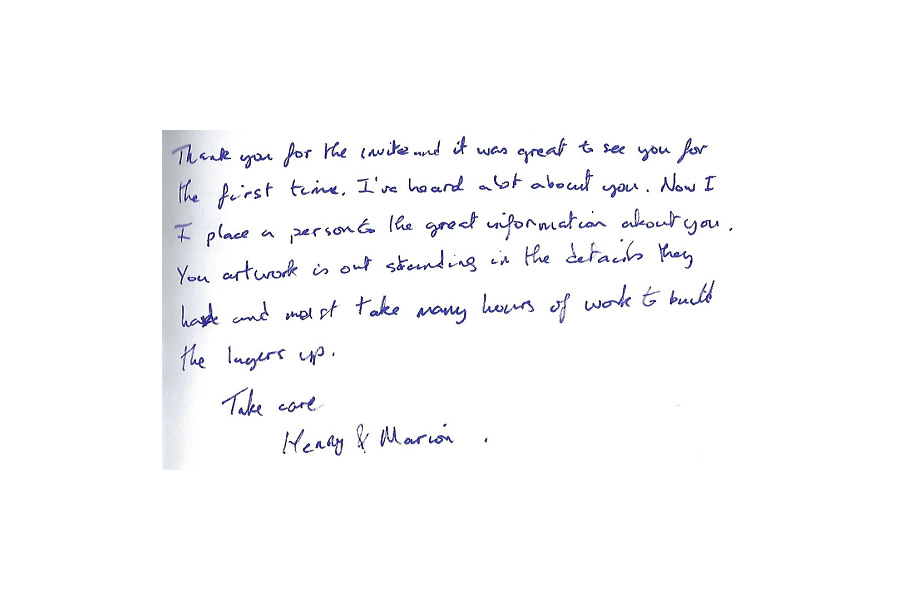 Thank you for the invite and it was great to see you for
the first time. I've heard alot about you. Now I
I place a person to the great information about you.
You artwork is out standing in the details they
have and must take many hours of work to build
the layers up.
Take care
Henry & Marion.